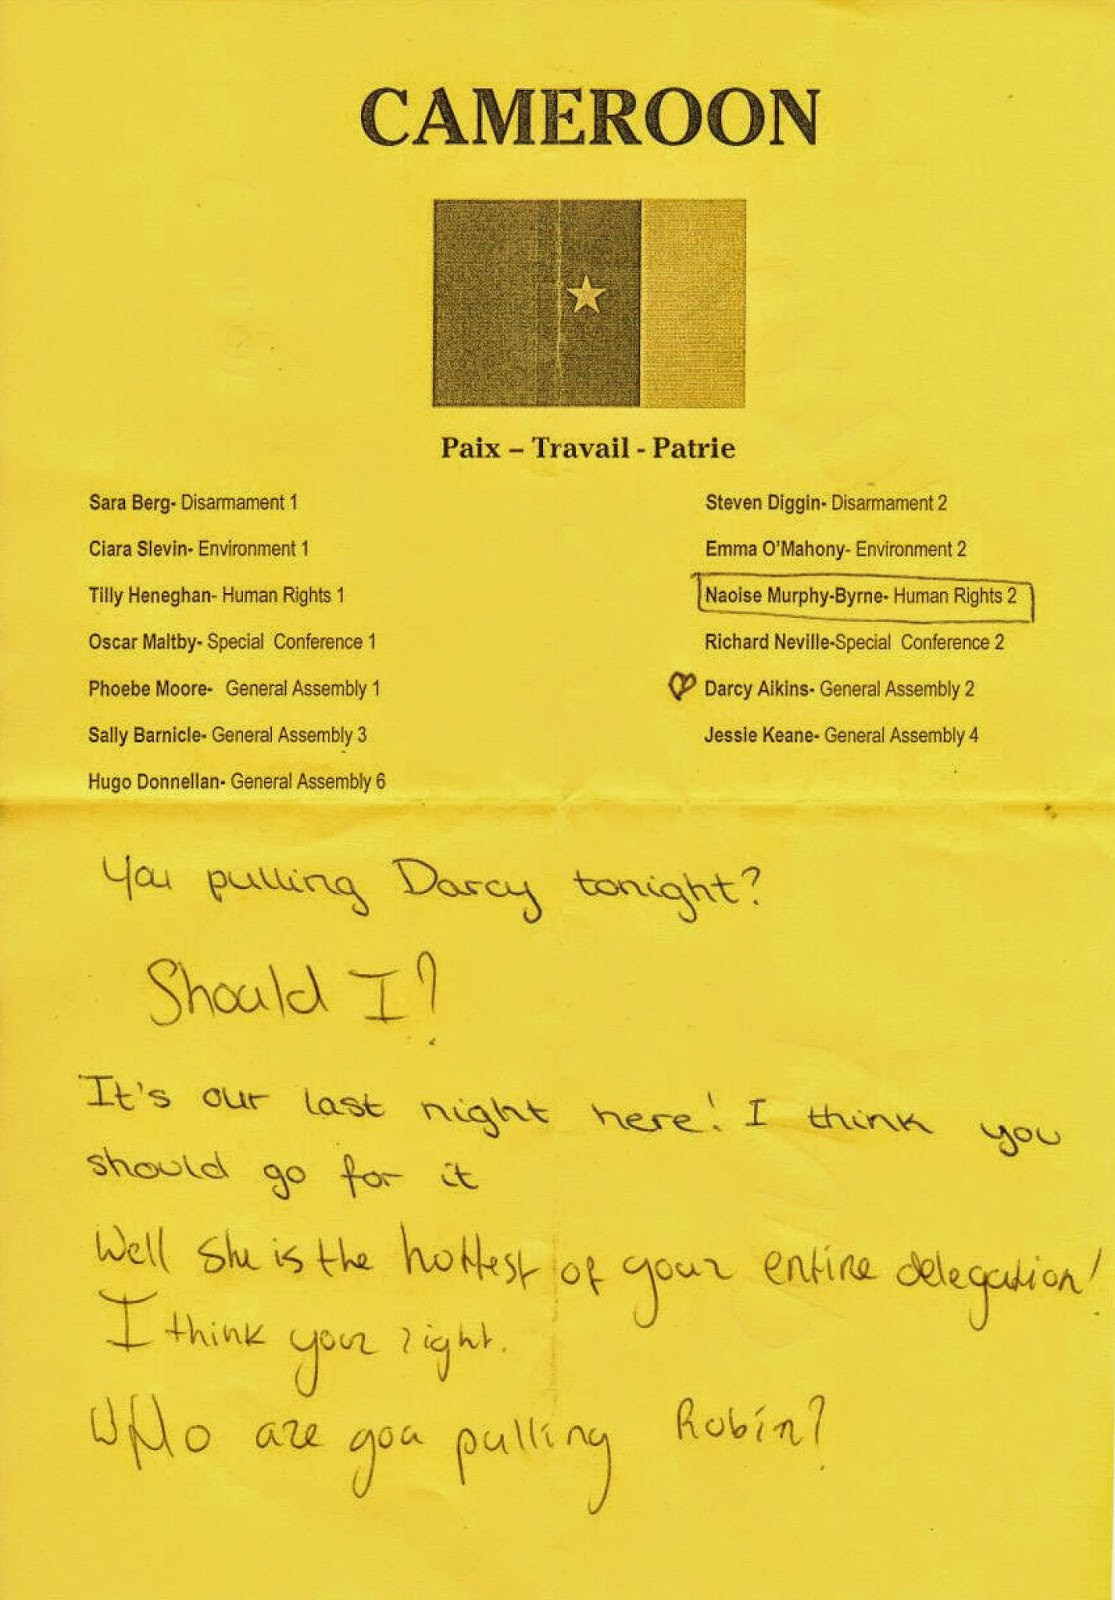 CAMEROON
Paix – Travail - Patrie
Sara Berg- Disarmament 1
Ciara Slevin- Environment 1
Tilly Heneghan- Human Rights 1
Oscar Maltby- Special Conference 1
Phoebe Moore- General Assembly 1
Sally Barnicle- General Assembly 3
Hugo Donnellan- General Assembly 6
Steven Diggin- Disarmament 2
Emma O'Mahony- Environment 2
Naoise Murphy-Byrne- Human Rights 2
Richard Neville-Special Conference 2
Darcy Aikins- General Assembly 2
Jessie Keane- General Assembly 4
You pulling Darcy tonight?
Should I?
It's our last night here! I think you
should go for it
Well she is the hottest of your entire delegation!
I think your right.
Who are you pulling Robin?